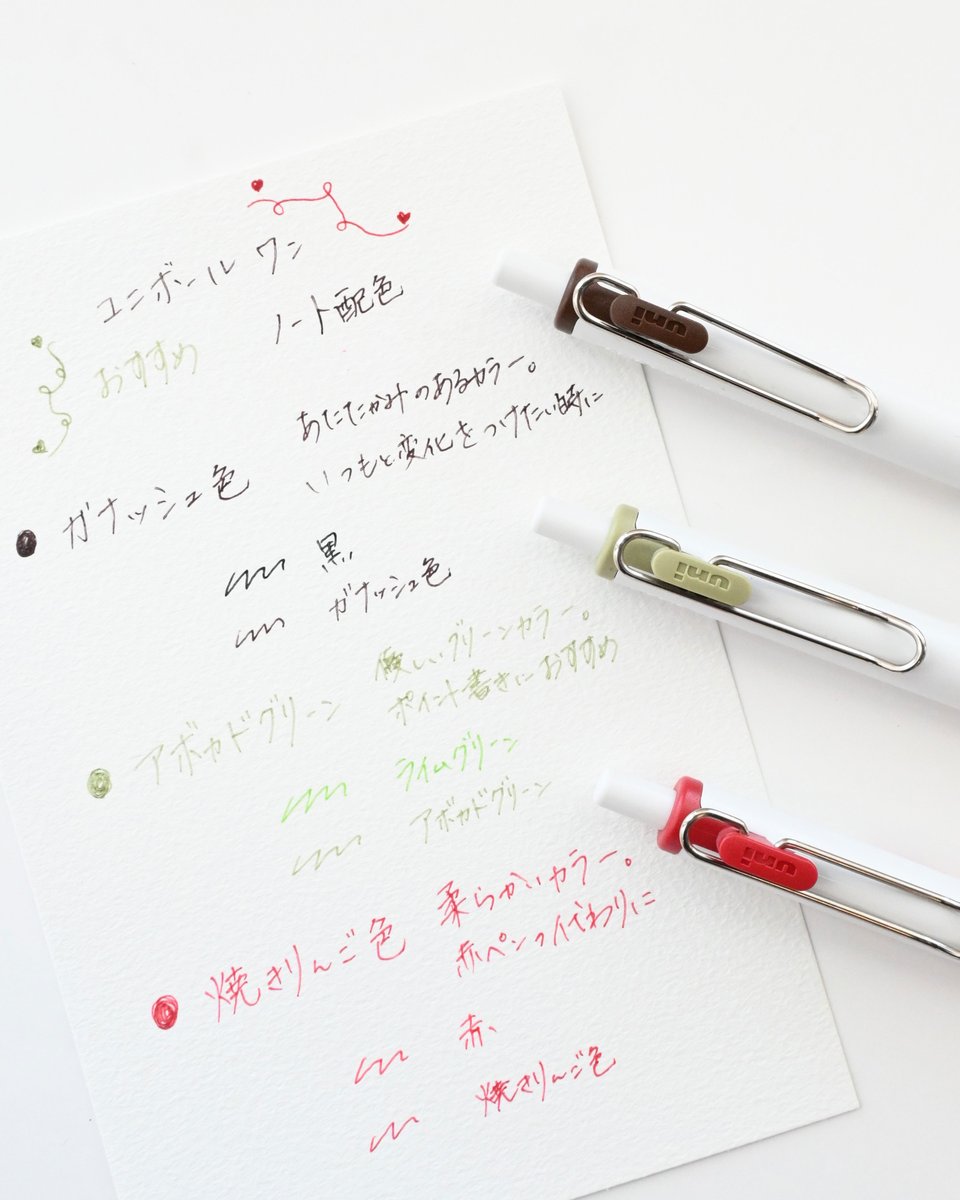 ユニボール ワン
おすすめ ノート配色
ガナッシュ色
あたたかみのあるカラー。
いつもと変化をつけたい時に
黒
ガナッシュ色
アボカドグリーン
優しいグリーンカラー。
ポイント書きにおすすめ
ライムグリーン
アボカドグリーン
焼きりんご色
柔らかいカラー。
赤ペンの代わりに
赤
焼きりんご色
uni
uni
uni